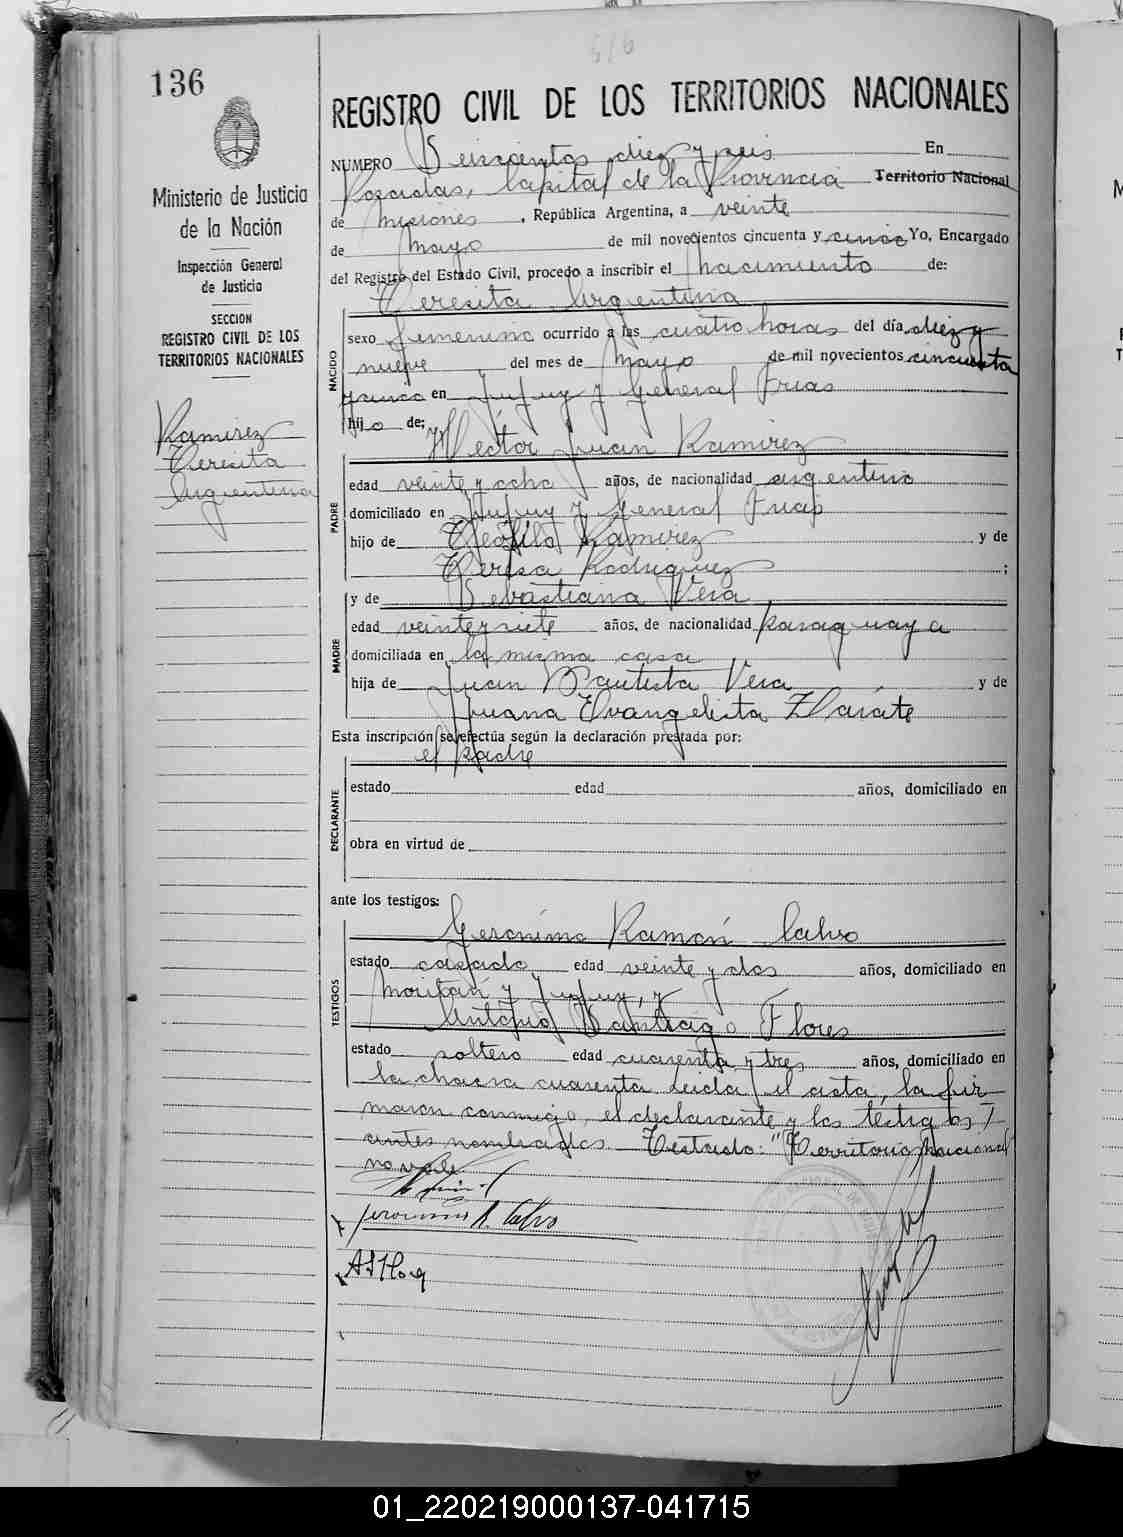 516
136
REGISTRO CIVIL DE LOS TERRITORIOS NACIONALES
Ministerio de Justicia
de la Nación
Inspección General
de Justicia
SECCION
REGISTRO CIVIL DE LOS
TERRITORIOS NACIONALES
Ramirez
Teresita
Argentina
NUMERO Seiscientos diez y seis En
Posadas, Capital de la Provincia Territorio Nacional
de Misiones, República Argentina, a veinte
de Mayo de mil novecientos cincuenta y cinco Yo, Encargado
del Registro del Estado Civil, procedo a inscribir el nacimiento de:
Teresita Argentina
NACIDO
sexo femenino ocurrido a las cuatro horas del día diez y
nueve del mes de Mayo de mil novecientos cincuenta
y cinco en Jujuy y General Frias
hijo de:
Héctor Juan Ramirez
PADRE
edad veinte y ocho años, de nacionalidad argentino
domiciliado en Jujuy y General Frias
hijo de Teófilo Ramirez y de
Teresa Rodriguez ;
y de Sebastiana Vera
MADRE
edad veinte y siete años, de nacionalidad paraguaya
domiciliada en la misma casa
hija de Juan Bautista Vera y de
Juana Evangelista Zárate
Esta inscripción se efectúa según la declaración prestada por:
el padre
DECLARANTE
estado edad años, domiciliado en
obra en virtud de
ante los testigos:
Gerónimo Ramón Calvo
TESTIGOS
estado casado edad veinte y dos años, domiciliado en
y Jujuy, y
Antonio Santiago Flores
estado soltero edad cuarenta y tres años, domiciliado en
la chacra cuarenta Leida el acta, la fir
maron conmigo, el declarante y los testigos
antes nombrados. Testado: "Territorio Nacional"
no vale
Jeronimo R. Calvo
01_220219000137-041715